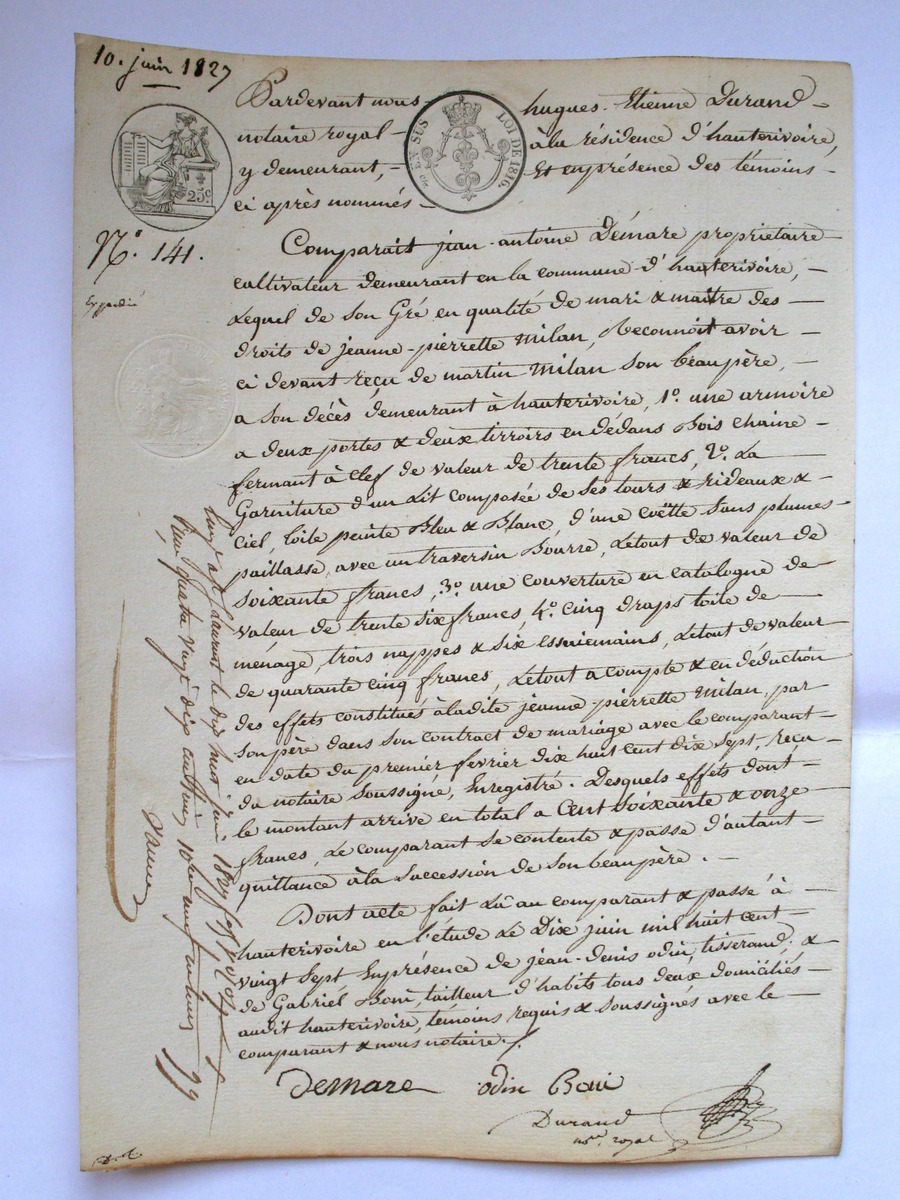 10. juin 1827
Pardevant nous - hugues - Etienne Durand -
notaire royal - àla résidence d'hauterivoire,
y demeurant, - Et enprésence des témoins -
ci après nommés -
EN SUS LOI DE 1816.
25c
N.° 141.
Expédié
Comparait jean-antoine Démare propriétaire
cultivateur demeurant en la commune d'hauterivoire, -
Lequel de son Gré en qualité de mari & maitre des -
droits de jeanne-pierrette Milan, Reconnoit avoir -
ci devant reçu de martin Milan son beaupère, -
a son décès demeurant à hauterivoire, 1.° une armoire
a deux portes & deux tirroirs en dédans Bois chaine -
fermant à clef de valeur de trente francs, 2.° La -
Garniture d'un Lit composée de Ses tours & rideaux & -
Ciel, toile peinte Bleu & Blanc, d'une coëtte Sans plumes -
paillasse, avec un traversin Bourre, Letout de valeur de
Soixante francs, 3.° une couverture en catalogne de
valeur de trente sixfrancs, 4.° cinq draps toile de
ménage, trois nappes & Six essuiemains, Letout de valeur
de quarante cinq francs, Letout a compte & en déduction
des effets constitués àladite jeanne-pierrette Milan, par
Son père dans Son contract de mariage avec le comparant -
en date du premier février dix huit cent dix sept, reçu -
du notaire Soussigné, Enregistré. Desquels effets dont -
le montant arrive en total a Cent Soixante & onze
francs, Le comparant Se contente & passe d'autant -
quittance àla Succession de Son beaupère. -
Dont acte fait Lû au comparant & passé à -
hauterivoire en l'étude Le Dix juin mil huit cent -
vingt Sept Enprésence de jean-Denis odin, tisserand, &
de Gabriél Boni, tailleur d'habits tous deux domiciliés -
audit hauterivoire, témoins requis & Soussignés avec le -
comparant & nous notaire.
Demare odin Boni
Durand
not.re royal
St Laurent le dix huit juin 1827
quatre vingt dix centimes